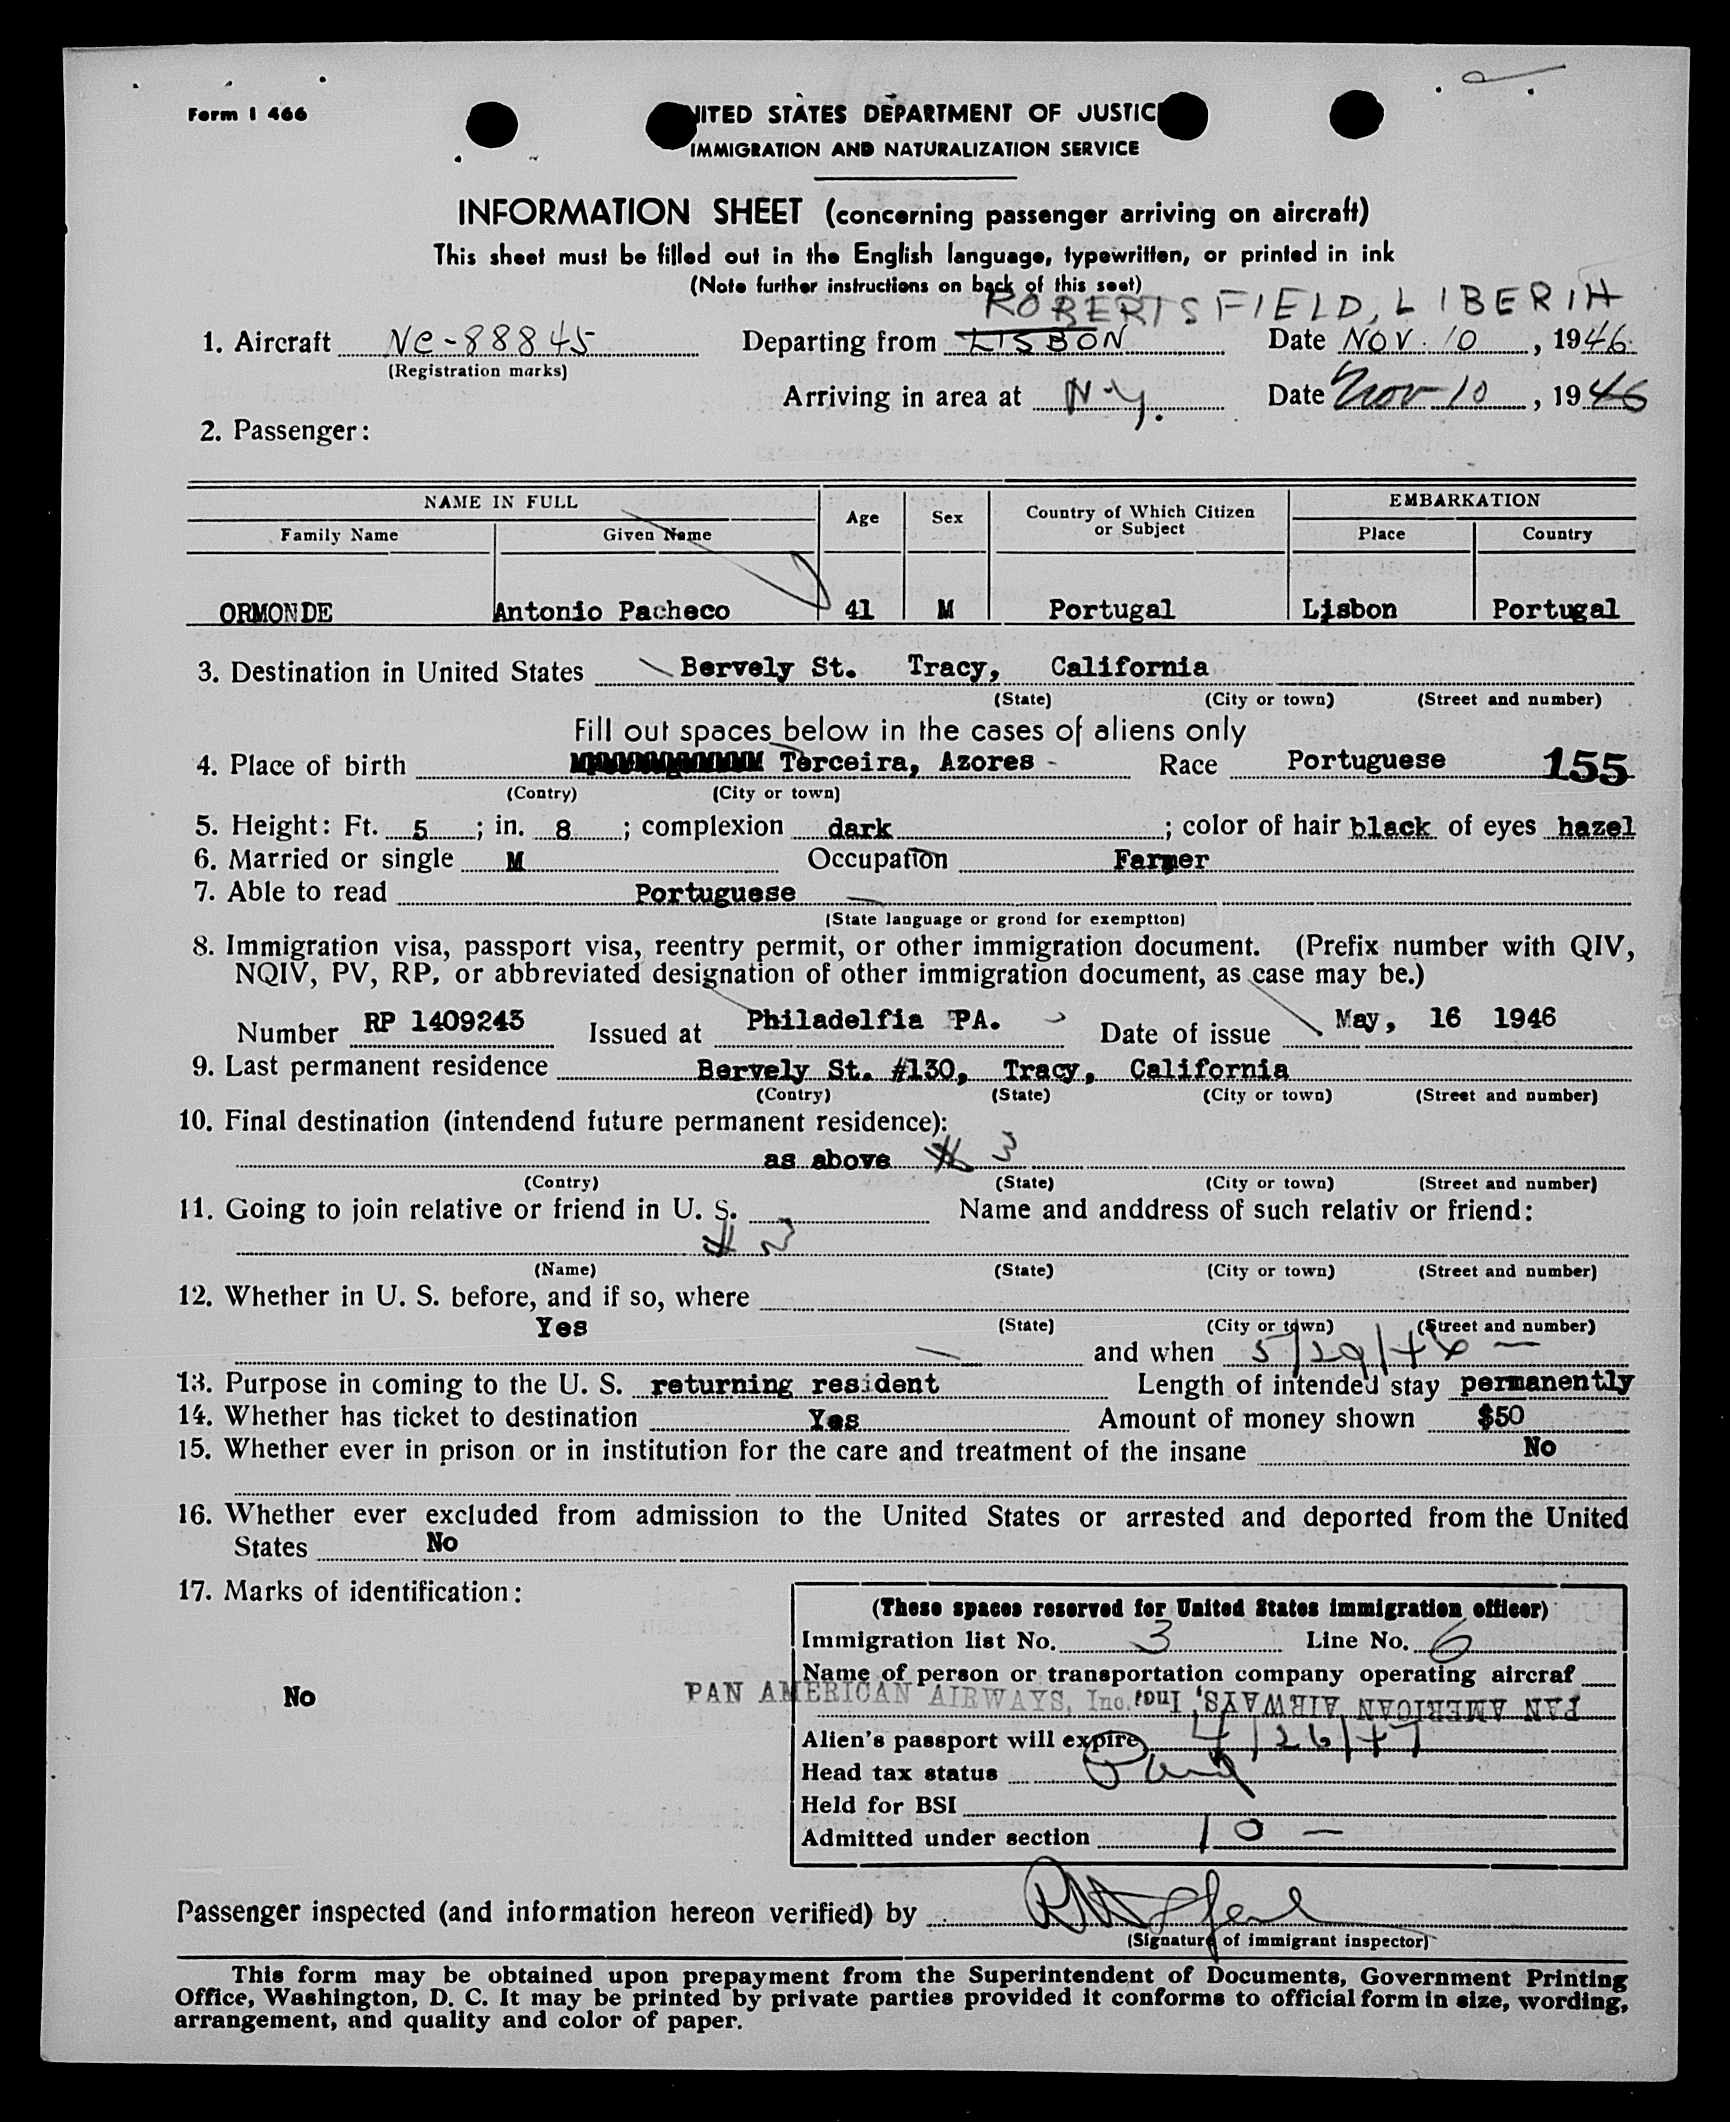 Form I 466
UNITED STATES DEPARTMENT OF JUSTICE
IMMIGRATION AND NATURALIZATION SERVICE
INFORMATION SHEET (concerning passenger arriving on aircraft)
This sheet must be filled out in the English language, typewritten, or printed in ink
(Note further instructions on back of this seet)
ROBERTSFIELD, LIBERIA
1. Aircraft NC-88845 Departing from LISBON Date NOV. 10, 1946
(Registration marks)
Arriving in area at N.Y. Date Nov 10, 1946
2. Passenger:
NAME IN FULL Age Sex Country of Which Citizen or Subject EMBARKATION
Family Name Given Name Place Country
ORMONDE Antonio Pacheco 41 M Portugal Lisbon Portugal
3. Destination in United States Bervely St. Tracy, California
(State) (City or town) (Street and number)
Fill out spaces below in the cases of aliens only
4. Place of birth Terceira, Azores - Race Portuguese 155
(Contry) (City or town)
5. Height: Ft. 5; in. 8; complexion dark; color of hair black of eyes hazel
6. Married or single M Occupation Farmer
7. Able to read Portuguese
(State language or grond for exemptton)
8. Immigration visa, passport visa, reentry permit, or other immigration document. (Prefix number with QIV,
NQIV, PV, RP, or abbreviated designation of other immigration document, as case may be.)
Number RP 1409243 Issued at Philadelfia PA. Date of issue May, 16 1946
9. Last permanent residence Bervely St. #130, Tracy, California
(Contry) (State) (City or town) (Street and number)
10. Final destination (intendend future permanent residence):
as above # 3
(Contry) (State) (City or town) (Street and number)
11. Going to join relative or friend in U. S. Name and anddress of such relativ or friend:
# 3
(Name) (State) (City or town) (Street and number)
12. Whether in U. S. before, and if so, where
Yes (State) (City or town) (Street and number)
and when 5/29/46 -
13. Purpose in coming to the U. S. returning resident Length of intended stay permanently
14. Whether has ticket to destination Yes Amount of money shown $50
15. Whether ever in prison or in institution for the care and treatment of the insane No
16. Whether ever excluded from admission to the United States or arrested and deported from the United
States No
17. Marks of identification:
No
(These spaces reserved for United States immigration officer)
Immigration list No. 3 Line No. 6
Name of person or transportation company operating aircraf
PAN AMERICAN AIRWAYS, Inc. PAN AMERICAN AIRWAYS, Inc.
Alien's passport will expire 4/26/47
Head tax status Paid
Held for BSI
Admitted under section 10 -
Passenger inspected (and information hereon verified) by
(Signature of immigrant inspector)
This form may be obtained upon prepayment from the Superintendent of Documents, Government Printing
Office, Washington, D. C. It may be printed by private parties provided it conforms to official form in size, wording,
arrangement, and quality and color of paper.